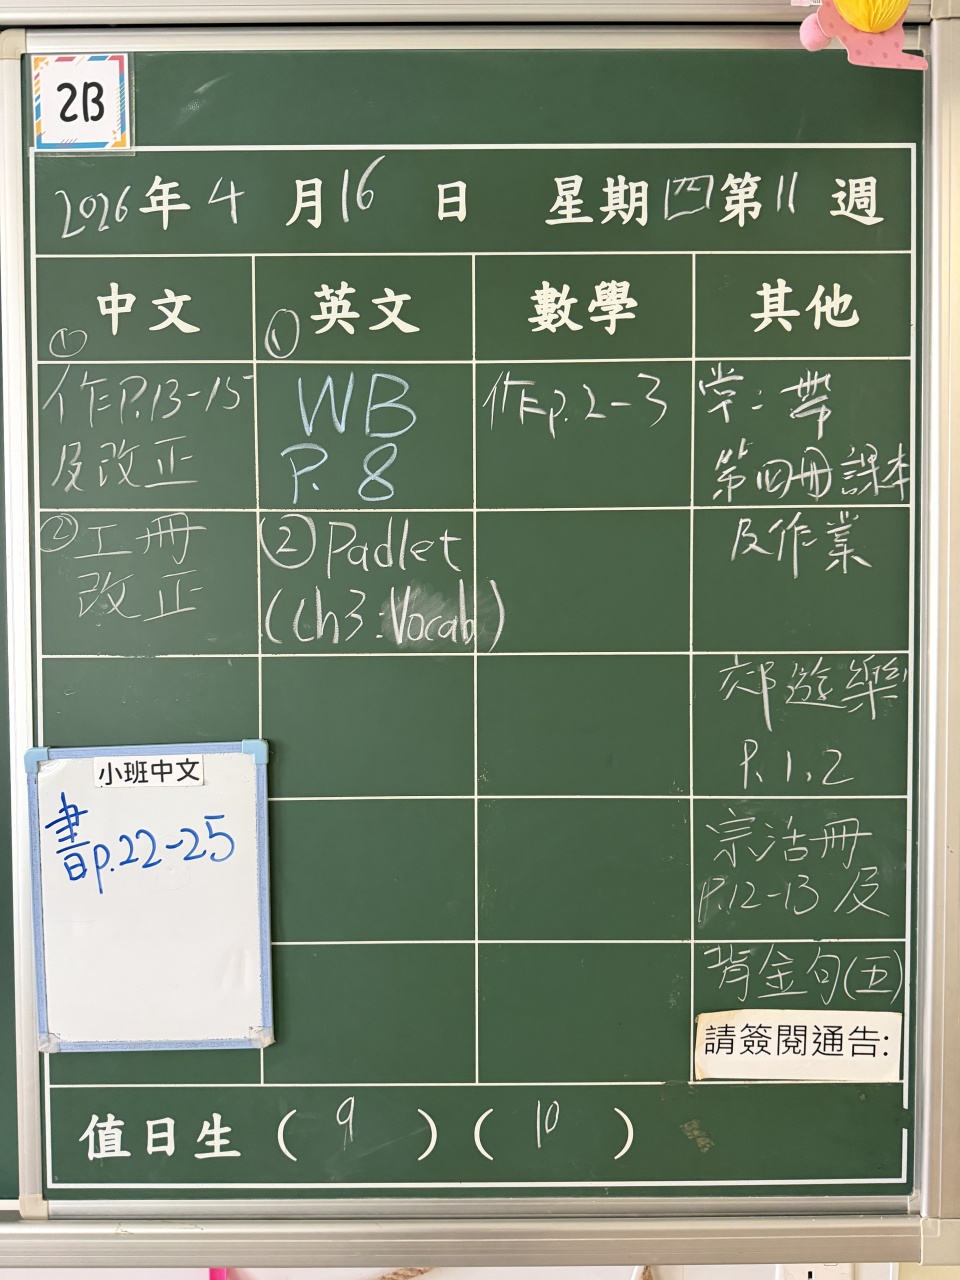 2B
2026年4月16日 星期四第11週
中文 英文 數學 其他
①
作P.13-15
及改正
②工冊
改正
小班中文
書p.22-25
①
WB
P. 8
②Padlet
(Ch3:Vocab)
作p.2-3
常:帶
第四冊課本
及作業
郊遊樂
P.1,2
宗活冊
P.12-13 及
背金句(五)
請簽閱通告:
值日生(9)(10)